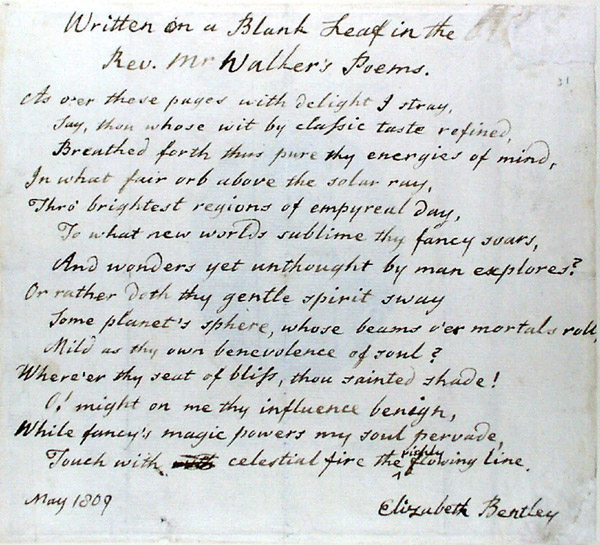 Written on a Blank Leaf in the
Rev. Mr Walker's Poems.
31
As o'er these pages with delight I stray,
Say, thou whose wit by classic taste refined,
Breathed forth thus pure thy energies of mind,
In what fair orb above the solar ray,
Thro' brightest regions of empyreal day,
To what new worlds sublime thy fancy soars,
And wonders yet unthought by man explores?
Or rather doth thy gentle spirit sway
Some planet's sphere, whose beams o'er mortals roll,
Mild as thy own benevolence of soul?
Where'er thy seat of bliss, thou sainted shade!
O! might on me thy influence benign,
While fancy's magic powers my soul pervade,
richly
Touch with celestial fire the flowing line.
May 1809
Elizabeth Bentley